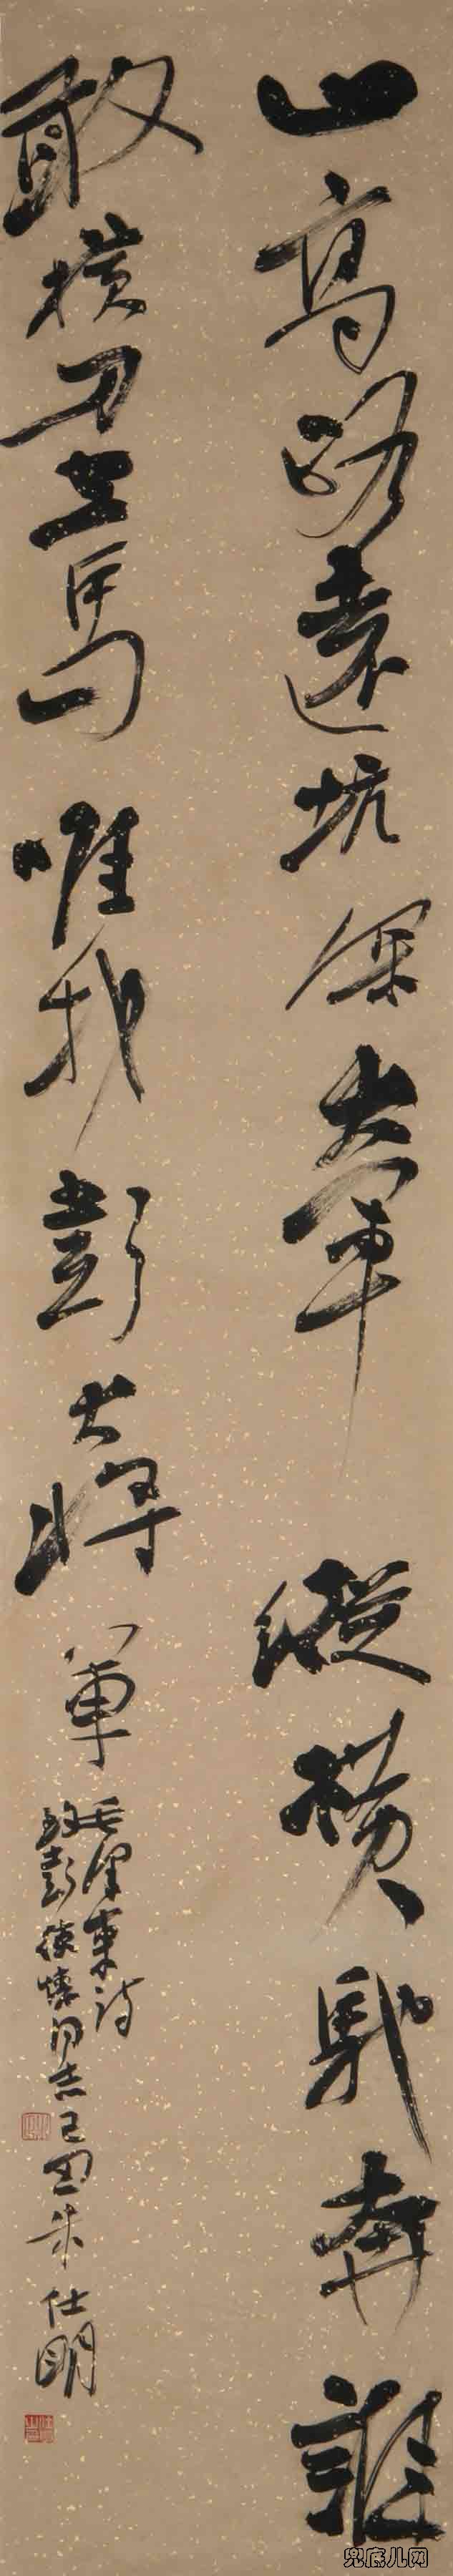 山高路遠坑深大軍縱橫馳奔誰
敢横刀立馬唯我彭大將軍
毛澤東詩
致彭德懷同志己丑朱仕明
兜底儿网